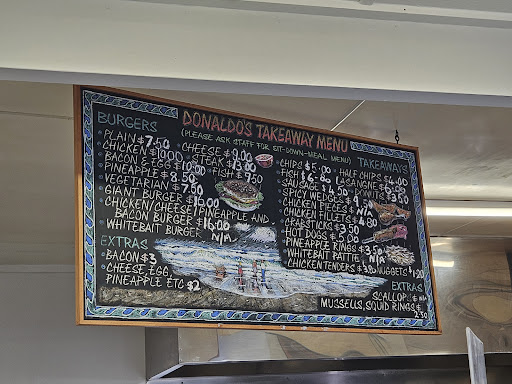 DONALDO'S TAKEAWAY MENU
(PLEASE ASK STAFF FOR SIT-DOWN-MEAL MENU)
BURGERS
PLAIN $7.50
CHICKEN $10.00
BACON & EGG $10.00
PINEAPPLE $8.50
VEGETARIAN $7.50
GIANT BURGER $16.00
CHICKEN/CHEESE/PINEAPPLE AND
BACON BURGER $16.00
WHITEBAIT BURGER N/A
CHEESE $9.00
STEAK $13.00
FISH $7.50
EXTRAS
BACON $3
CHEESE, EGG,
PINEAPPLE ETC $2
TAKEAWAYS
CHIPS $5.00
HALF CHIPS $4.00
FISH
LASAGNE
SAUSAGE $4.50
DONUTS $3.50
SPICY WEDGES
CHICKEN PIECES N/A
CHICKEN FILLETS
CRABSTICKS $3.50
HOT DOGS
PINEAPPLE RINGS $3.50
WHITEBAIT PATTIE N/A
CHICKEN TENDERS
NUGGETS
EXTRAS
SCALLOP N/A
MUSSELS, SQUID RINGS